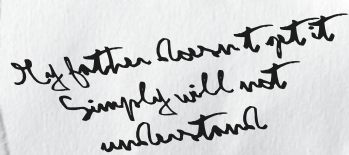 My father doesn't get it
Simply will not
understand